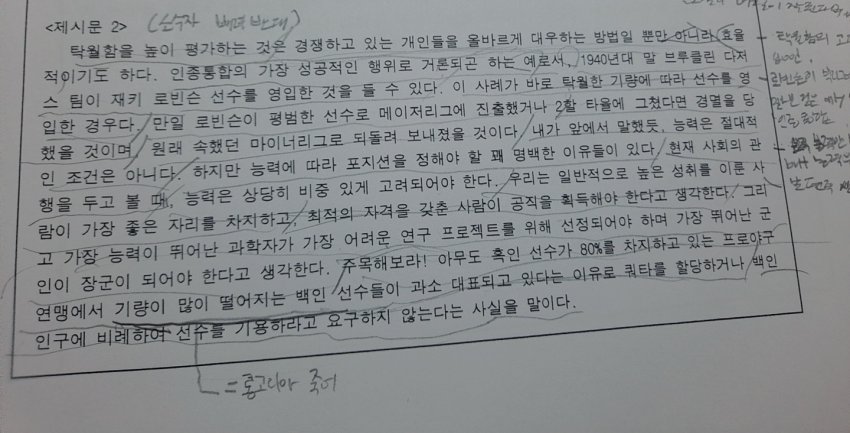 <제시문 2>
탁월함을 높이 평가하는 것은 경쟁하고 있는 개인들을 올바르게 대우하는 방법일 뿐만 아니라 효율
적이기도 하다. 인종통합의 가장 성공적인 행위로 거론되곤 하는 예로서, 1940년대 말 브루클린 다저
스 팀이 재키 로빈슨 선수를 영입한 것을 들 수 있다. 이 사례가 바로 탁월한 기량에 따라 선수를 영
입한 경우다. 만일 로빈슨이 평범한 선수로 메이저리그에 진출했거나 2할 타율에 그쳤다면 경멸을 당
했을 것이며 원래 속했던 마이너리그로 되돌려 보내졌을 것이다. 내가 앞에서 말했듯, 능력은 절대적
인 조건은 아니다. 하지만 능력에 따라 포지션을 정해야 할 꽤 명백한 이유들이 있다. 현재 사회의 관
행을 두고 볼 때, 능력은 상당히 비중 있게 고려되어야 한다. 우리는 일반적으로 높은 성취를 이룬 사
람이 가장 좋은 자리를 차지하고, 최적의 자격을 갖춘 사람이 공직을 획득해야 한다고 생각한다. 그리
고 가장 능력이 뛰어난 과학자가 가장 어려운 연구 프로젝트를 위해 선정되어야 하며 가장 뛰어난 군
인이 장군이 되어야 한다고 생각한다. 주목해보라! 아무도 흑인 선수가 80%를 차지하고 있는 프로야구
연맹에서 기량이 많이 떨어지는 백인 선수들이 과소 대표되고 있다는 이유로 쿼타를 할당하거나 백인
인구에 비례하여 선수를 기용하라고 요구하지 않는다는 사실을 말이다.